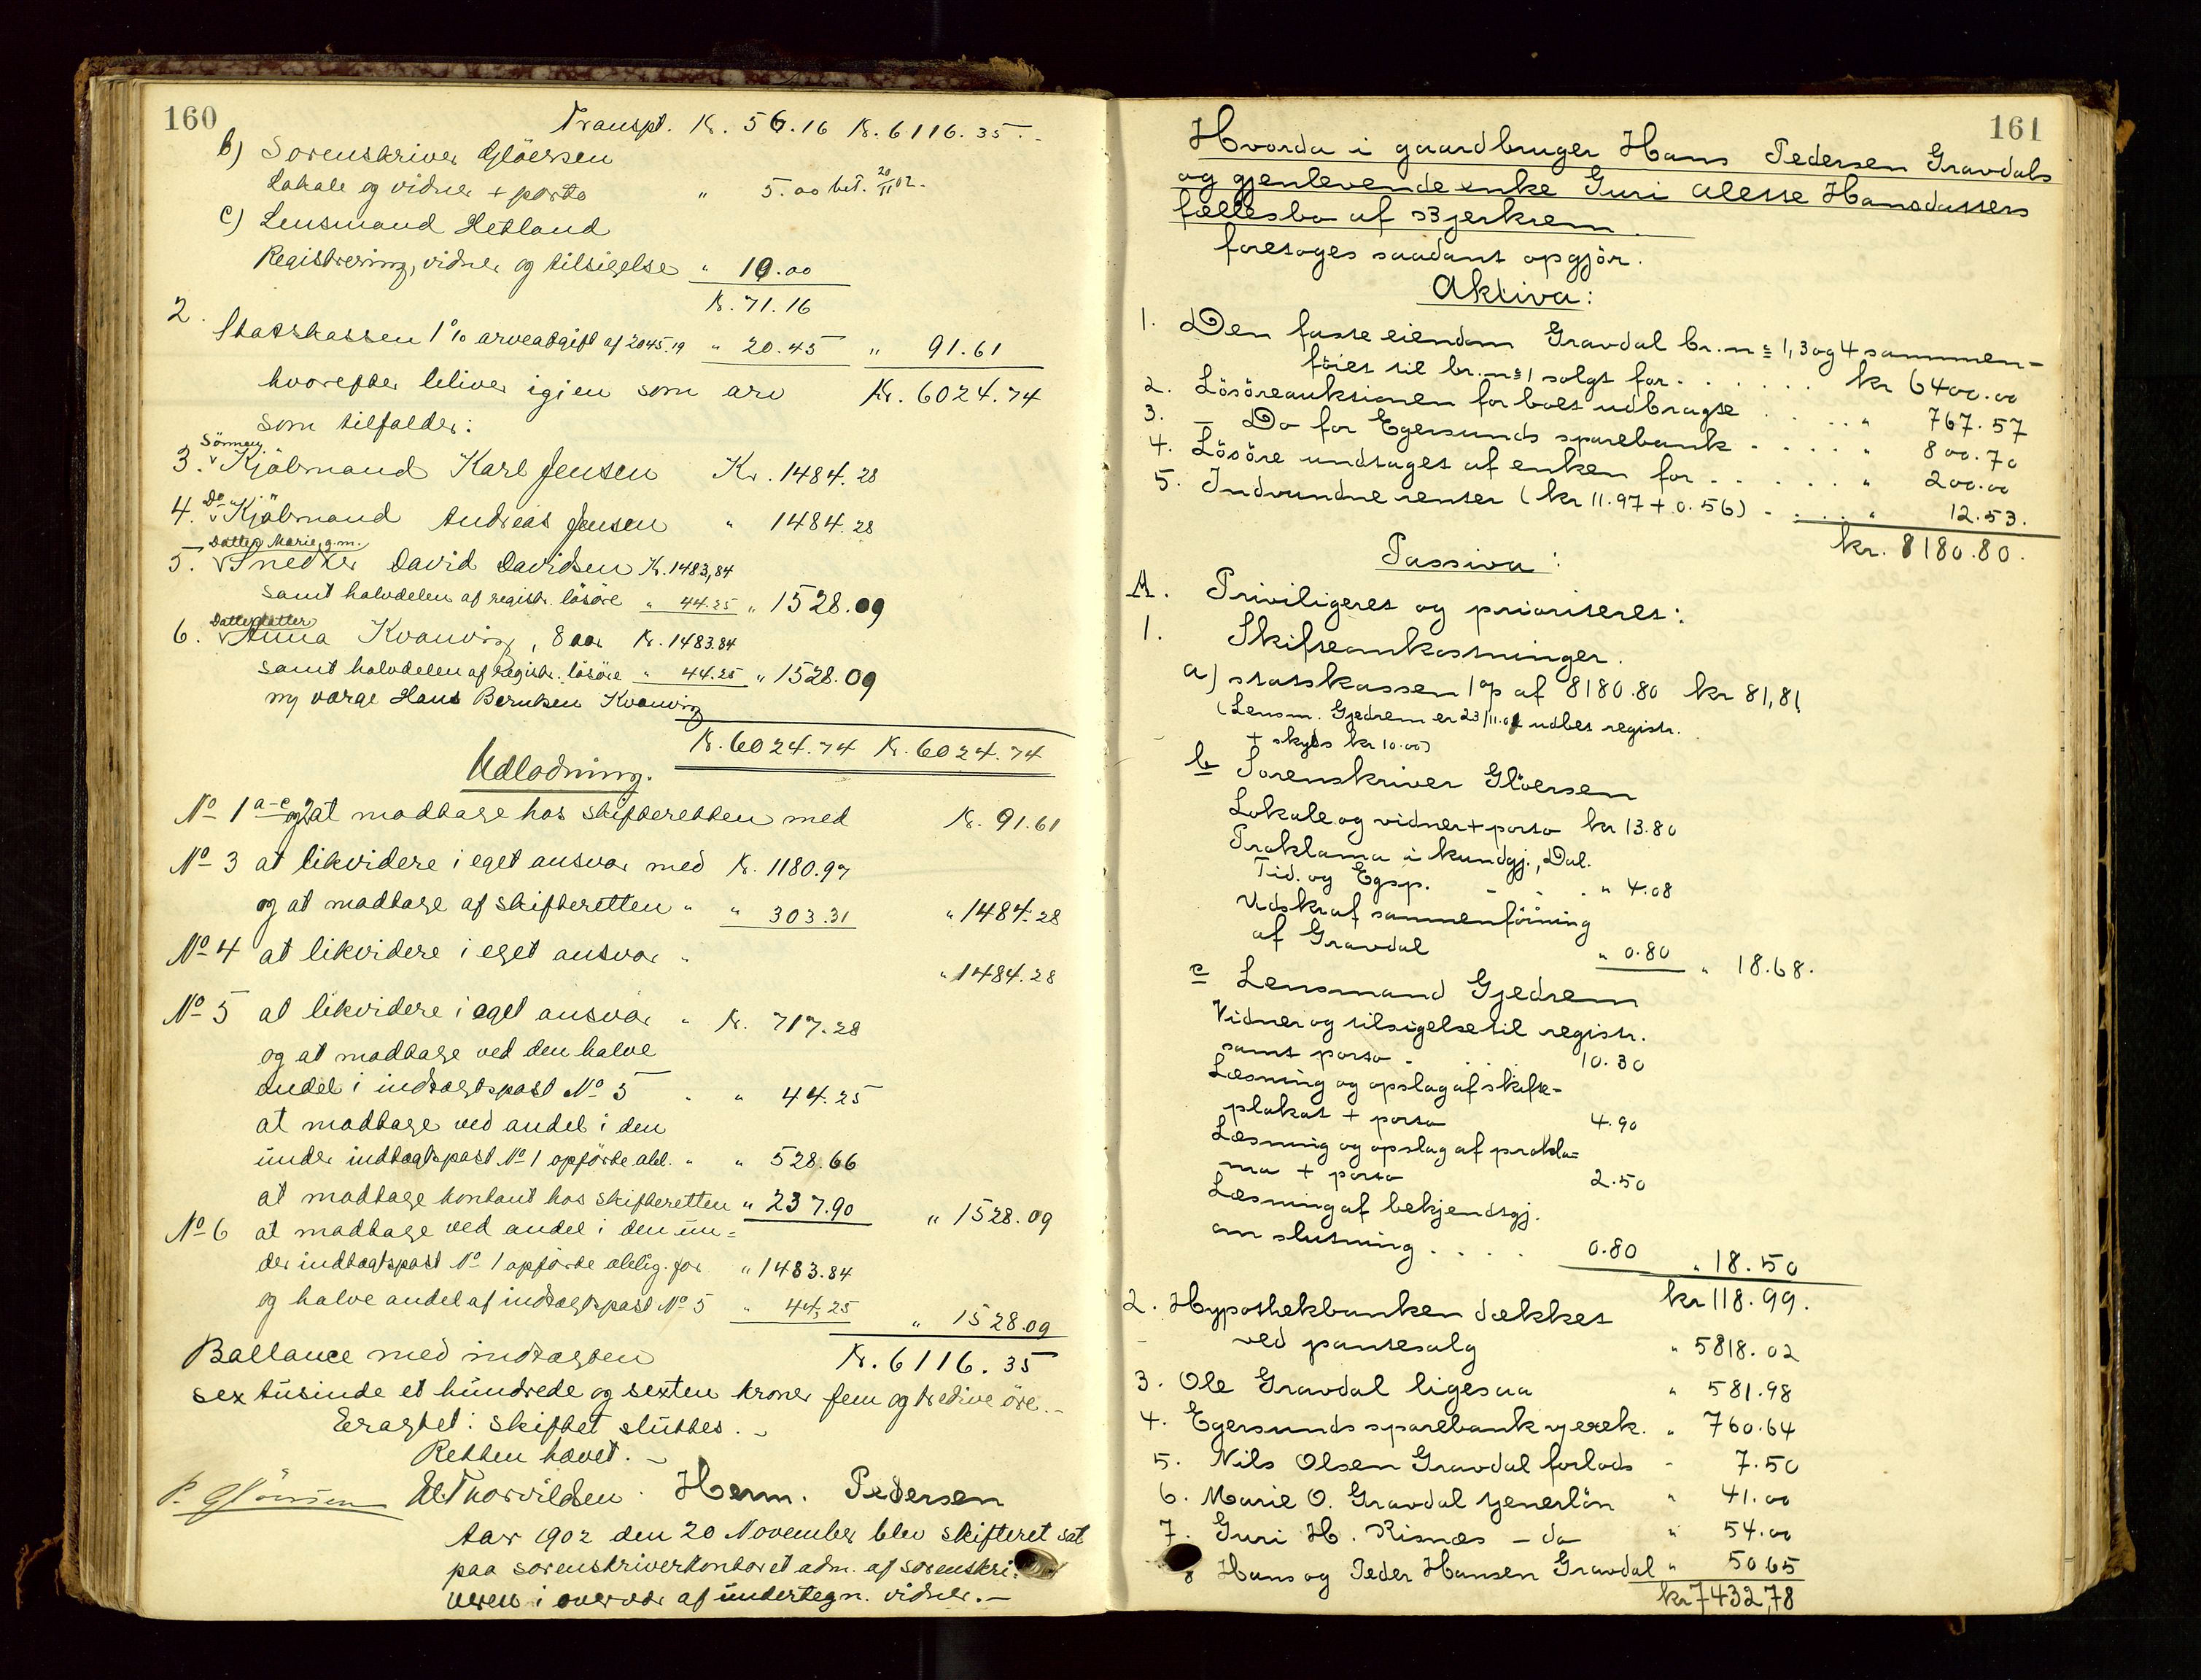 160
Transpt. Kr. 56.16 Kr. 6116.35.-
b) Sorenskriver Glöersen
Lokale og vidner + porto " 5.00 bet. 20/11 02.
c) Lensmand Hetland
Registrering, vidner og tilsigelse " 10.00
Kr. 71.16
2. Statskassen 1% arveafgift af 2045.19 " 20.45 " 91.61
hvorefter bliver igjen som arv Kr. 6024.74
som tilfalder:
Sönnen
3. v Kjöbmand Karl Jensen Kr. 1484.28
Do
4. v Kjöbmand Andreas Jensen " 1484.28
Datter Marie g.m.
5. v Snedker David Davidsen Kr. 1483,84
samt halvdelen af registr. lösöre " 44.25 " 1528.09
Datterdatter
6. v Anna Kvanvig, 8 aar Kr. 1483.84
samt halvdelen af registr. lösöre " 44.25 " 1528.09
ny værge Hans Berntsen Kvanvig
Kr. 6024.74 Kr. 6024.74
Udlodning.
No 1 a-c og 2 at modtage hos skifteretten med Kr. 91.61
No 3 at likvidere i eget ansvar med Kr. 1180.97
og at modtage af skifteretten " " 303.31 " 1484.28
No 4 at likvidere i eget ansvar "
" 1484.28
No 5 at likvidere i eget ansvar " Kr. 717.28
og at modtage ved den halve
andel i indtægtspost No 5 " " 44.25
at modtage ved andel i den
under indtægtspost No 1 opförte obl. " " 528.66
at modtage kontant hos skifteretten " 237.90 " 1528.09
No 6 at modtage ved andel i den un=
der indtægtspost No 1 opförte oblig. for " 1483.84
og halve andel af indtægtspost No 5 " 44,25 " 1528.09
Ballance med indtægten Kr. 6116.35
sex tusinde et hundrede og sexten kroner fem og tredive öre.-
Eragtet: skiftet sluttes.-
Retten hævet.-
P. Glöersen Herm. Pedersen
Aar 1902 den 20 November blev skifteret sat
paa sorenskriverkontoret adm. af sorenskri-
veren i overvær af undertegn. vidner.-
161
Hvorda i gaardbruger Hans Pedersen Gravdals
og gjenlevende enke Guri Alette Hansdatters
fællesbo af Bjerkrem.
foretoges saadant opgjör.
Aktiva:
1. Den faste eiendom Gravdal br. no 1, 3 og 4 sammen-
föiet til br. no 1 solgt for . . . . . . kr 6400.00
2. Lösöreauktionen for boet udbragte . . . " 767.57
3. - Do for Egersunds sparebank . . . . " 800.70
4. Lösöre undtaget af enken for . . . . . " 200.00
5. Indvundne renter (kr 11.97 + 0.56) . . . . " 12.53.
kr. 8180.80.
Passiva:
A. Priviligeret og prioriteret:
1. Skifteomkostninger.
a) statskassen 1 op af 8180.80 kr 81,81
(Lensm. Gjedrem er 23/11.01 udbet registr.
+ skyds kr 10.00)
b Sorenskriver Glöersen
Lokale og vidner + porto kr 13.80
Proklama i kundgj., Dal.
Tid. og Egsp. - - . " 4.08
Udskr af sammenföining
af Gravdal " 0.80 " 18.68.
c Lensmand Gjedrem
Vidner og tilsigelse til registr.
samt porto . . . . 10.30
Læsning og opslag af skifte-
plakat + porto 4.90
Læsning og opslag af prokla=
ma + porto 2.50
Læsning af bekjendtgj.
om slutning . . . . 0.80 " 18.50
kr 118.99.
2. Hypothekbanken dækket
ved pantesalg " 5818.02
3. Ole Gravdal ligesaa " 581.98
4. Egersunds sparebank v. exek. " 760.64
5. Nils Olsen Gravdal forlods - 7.50
6. Marie O. Gravdal tjenerlön " 41.00
7. Guri H. Risnæs - do " 54.00
8 Hans og Peder Hansen Gravdal " 50 65
kr 7432,78